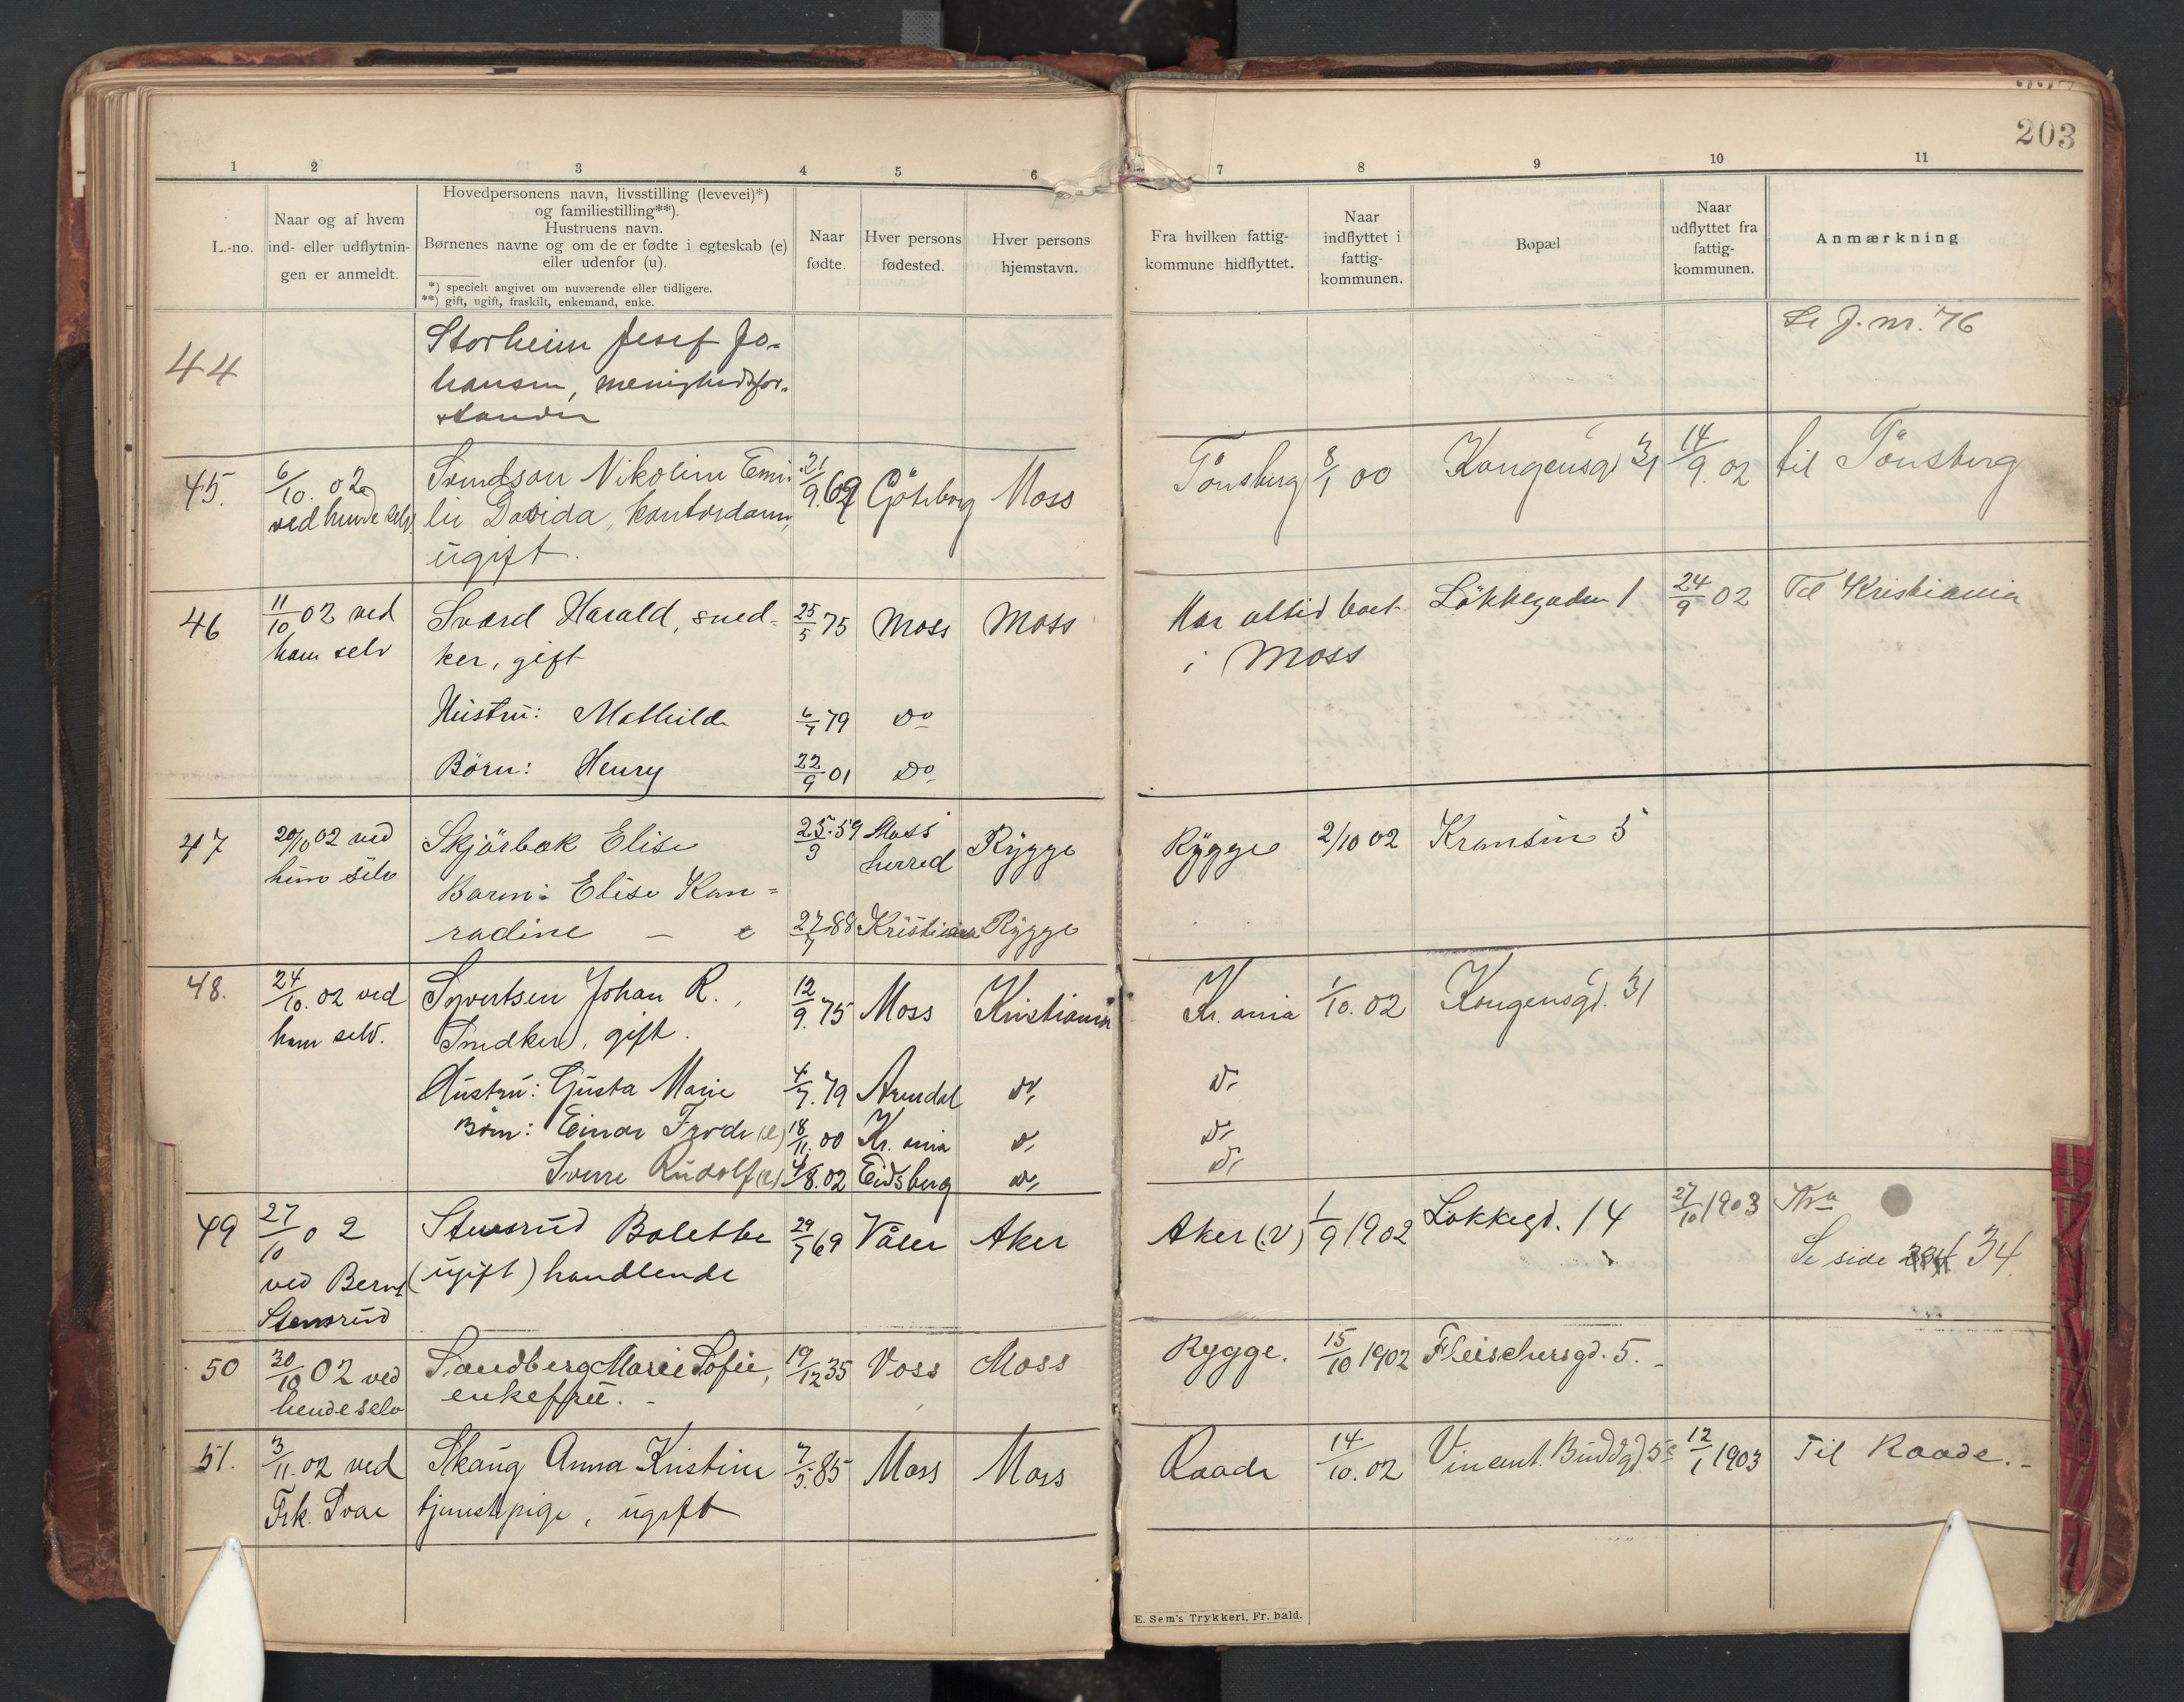 203
1 2 3 4 5 6 7 8 9 10 11
L.-no.
Naar og af hvem
ind- eller udflytnin-
gen er anmeldt.
Hovedpersonens navn, livsstilling (levevei)*)
og familiestilling**).
Hustruens navn.
Børnenes navne og om de er fødte i egteskab (e)
eller udenfor (u).
*) specielt angivet om nuværende eller tidligere.
**) gift, ugift, fraskilt, enkemand, enke.
Naar
fødte.
Hver persons
fødested.
Hver persons
hjemstavn.
Fra hvilken fattig-
kommune hidflyttet.
Naar
indflyttet i
fattig-
kommunen.
Bopæl
Naar
udflyttet fra
fattig-
kommunen.
Anmærkning
44 Storheim Josef Jo- Se J. nr. 76
hansen, menighedsfor-
stander
45. 6/10. 02 Svendsen Nikoline Emi- 21/9.69 Göteborg Moss Tönsberg 8/1 00 Kongensgd 31 14/9.02 til Tönsberg
ved hende selv. lie Davida, kontordame,
ugift.
46 11/10 02 ved Sværd Harald, sned- 25/5 75 Moss Moss Har altid boet Løkkegaden 1 24/9 02 Til Kristiania
ham selv ker, gift i Moss
Hustru: Mathilde 6/7 79 Do
Børn: Henry 22/9 01 Do
47 20/10 02 ved Skjörbæk Elise 25/3.59 Moss herred Rygge Rygge 2/10 02 Kransen 5
Barn: Elise Kon-
radine — e 27/7 88 Kristiania Rygge
48. 24/10. 02 ved Syvertsen Johan R., 12/9.75 Moss Kristiania Kr. ania 1/10.02 Kongensgd. 31
ham selv. Snedker, gift.
Hustru: Gusta Marie 4/7.79 Arendal do do
Børn: Einar Frode (e) 18/11.00 Kr. ania do do
Sverre Rudolf (e) 4/8.02 Eidsberg do do
49 27/10 02 Stensrud Bolette 29/7 69 Våler Aker Aker (V) 1/9 1902 Løkkegd. 14 27/10 1903 Kra
ved Bernt (ugift) handlende Se side 434.
Stensrud
50 30/10 02 ved Sandberg Marie Sofie, 19/12 35 Voss Moss Rygge. 15/10 1902 Fleischersgd. 5.
hende selv enkefru.
51. 3/11.02 ved Skaug Anna Kristine 7/5.85 Moss Moss Raade 14/10.02 Vincent Buddgd. 5 12/1 1903 Til Raade.
Frk. tjenestpige, ugift
E. Sem's Trykkeri, Fr. hald.